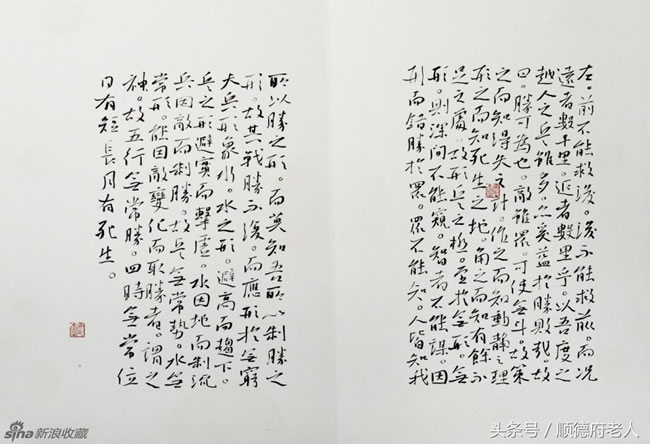 左。前不能救後。後不能救前。而况
遠者數千里。近者數里乎。以吾度之
越人之兵雖多。亦奚益於勝敗哉。故
曰。勝可為也。敵雖眾。可使無斗。故策
之而知得失之計。作之而知動靜之理
形之而知死生之地。角之而知有餘不
足之處。故形兵之極。至於無形。無
形。則深間不能窺。智者不能謀。因
形而錯勝於眾。眾不能知。人皆知我
所以勝之形。而莫知吾所以制勝之
形。故其戰勝不復。而應形於無窮
夫兵形象水。水之形。避高而趨下。
兵之形避實而擊虛。水因地而制流
兵因敵而制勝。故兵無常勢。水無
常形。能因敵變化而取勝者。謂之
神。故五行無常勝。四時無常位
日有短長。月有死生。
sina新浪收藏
头条号 / 顺德府老人